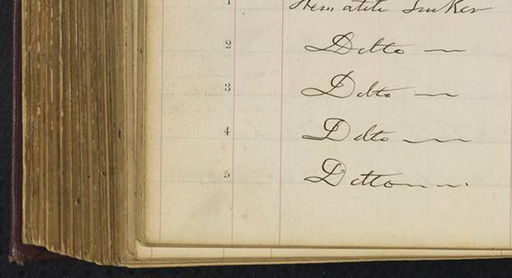 1 Hematite Sinker
2 Ditto — 
3 Ditto —
4 Ditto —
5 Ditto —